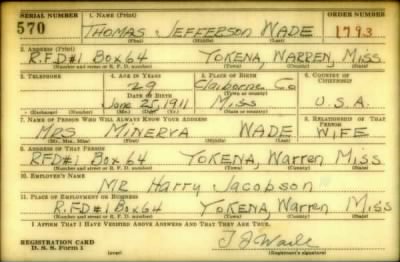 SERIAL NUMBER 1. NAME (Print) ORDER NUMBER
570 THOMAS JEFFERSON WADE 1793
(First) (Middle) (Last)
2. ADDRESS (Print)
R.F.D#1 BOX 64 YOKENA, WARREN, MISS
(Number and street or R. F. D. number) (Town) (County) (State)
3. TELEPHONE 4. AGE IN YEARS 5. PLACE OF BIRTH 6. COUNTRY OF CITIZENSHIP
29 Claiborne Co
DATE OF BIRTH (Town or county)
June 25, 1911 MISS U.S.A.
(Exchange) (Number) (Mo.) (Day) (Yr.) (State or country)
7. NAME OF PERSON WHO WILL ALWAYS KNOW YOUR ADDRESS 8. RELATIONSHIP OF THAT PERSON
MRS MINERVA WADE WIFE
(Mr., Mrs., Miss) (First) (Middle) (Last)
9. ADDRESS OF THAT PERSON
RFD#1 Box 64 YOKENA, Warren Miss
(Number and street or R. F. D. number) (Town) (County) (State)
10. EMPLOYER'S NAME
MR Harry Jacobson
11. PLACE OF EMPLOYMENT OR BUSINESS
R.F.D#1 Box 64 YOKENA, Warren Miss
(Number and street or R. F. D. number) (Town) (County) (State)
I AFFIRM THAT I HAVE VERIFIED ABOVE ANSWERS AND THAT THEY ARE TRUE.
REGISTRATION CARD
D. S. S. Form 1 (over) T J Wade
(Registrant's signature)